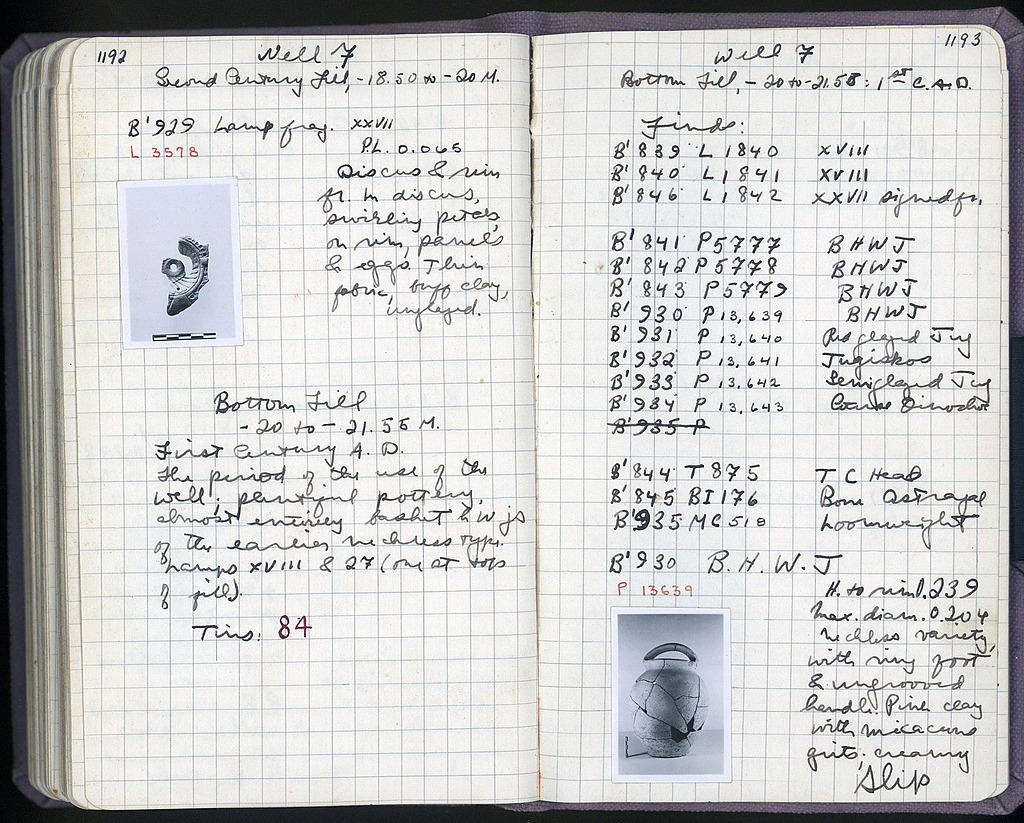 1192
Well 7
Second Century Fill, -18.50 to -20 M.
B'929 Lamp frag. XXVII
L 3578 P.L. 0.065
Discus & rim
fr. m discus,
swirling petals,
on rim, panels
& eggs. Thin
fabric, buff clay,
unglazed.
Bottom Fill
-20 to -21.55 M.
First Century A.D.
The period of the use of the
well; plentiful pottery,
almost entirely basket h w js
of the earlier neckless type.
Lamps XVIII & 27 (one at top
of fill).
Tins: 84
1193
Well 7
Bottom Fill, -20 to -21.55: 1st C. A.D.
Finds:
B'839 L 1840 XVIII
B'840 L 1841 XVIII
B'846 L 1842 XXVII signed fr.
B'841 P 5777 BHWJ
B'842 P 5778 BHWJ
B'843 P 5779 BHWJ
B'930 P 13,639 BHWJ
B'931 P 13,640 glazed Jug
B'932 P 13,641 Jugiskos
B'933 P 13,642 Semiglazed Jug
B'934 P 13,643 Coarse Oinochoe
B'935 P
B'844 T 875 TC Head
B'845 BI 176 Bone Astragal
B'935 MC 518 Loomweight
B'930 B.H.W.J
P 13639 H. to rim 0.239
Max. diam. 0.204
Neckless variety,
with ring foot
& ungrooved
handle. Pink clay
with micaceous
grits; creamy
slip